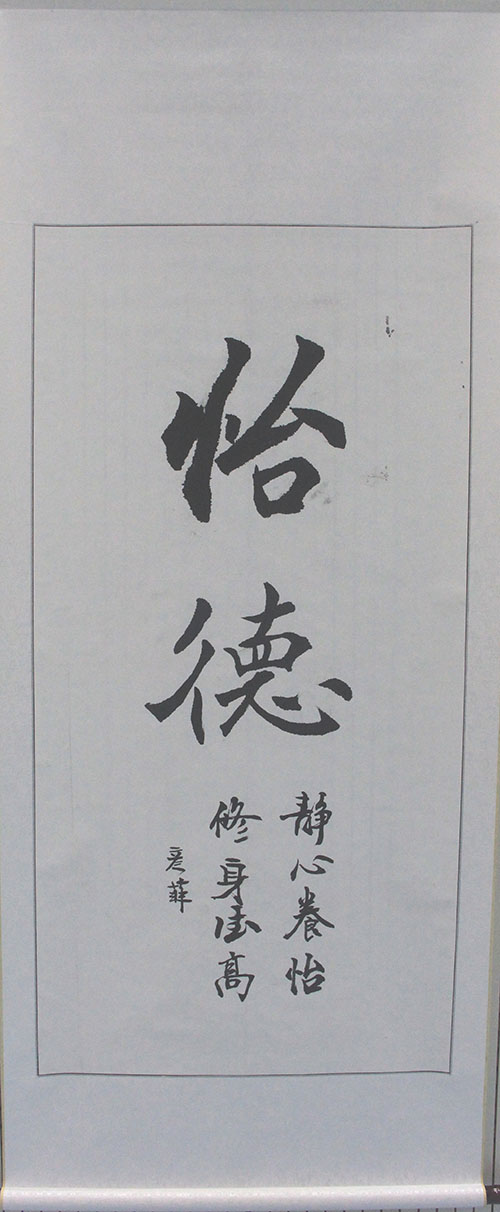 怡
德
静心养怡
修身德高
彦菲